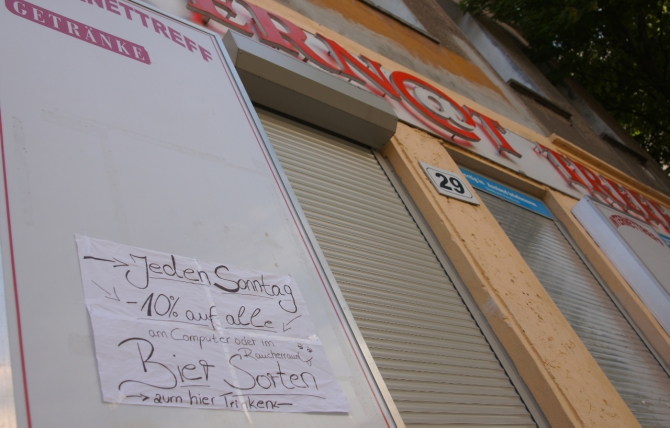 RNETTREFF
GETRÄNKE
ERN@T TREFF
29
→ Jeden Sonntag
-10% auf alle
am Computer oder im
Raucherraum
Bier Sorten
→ zum hier Trinken ←